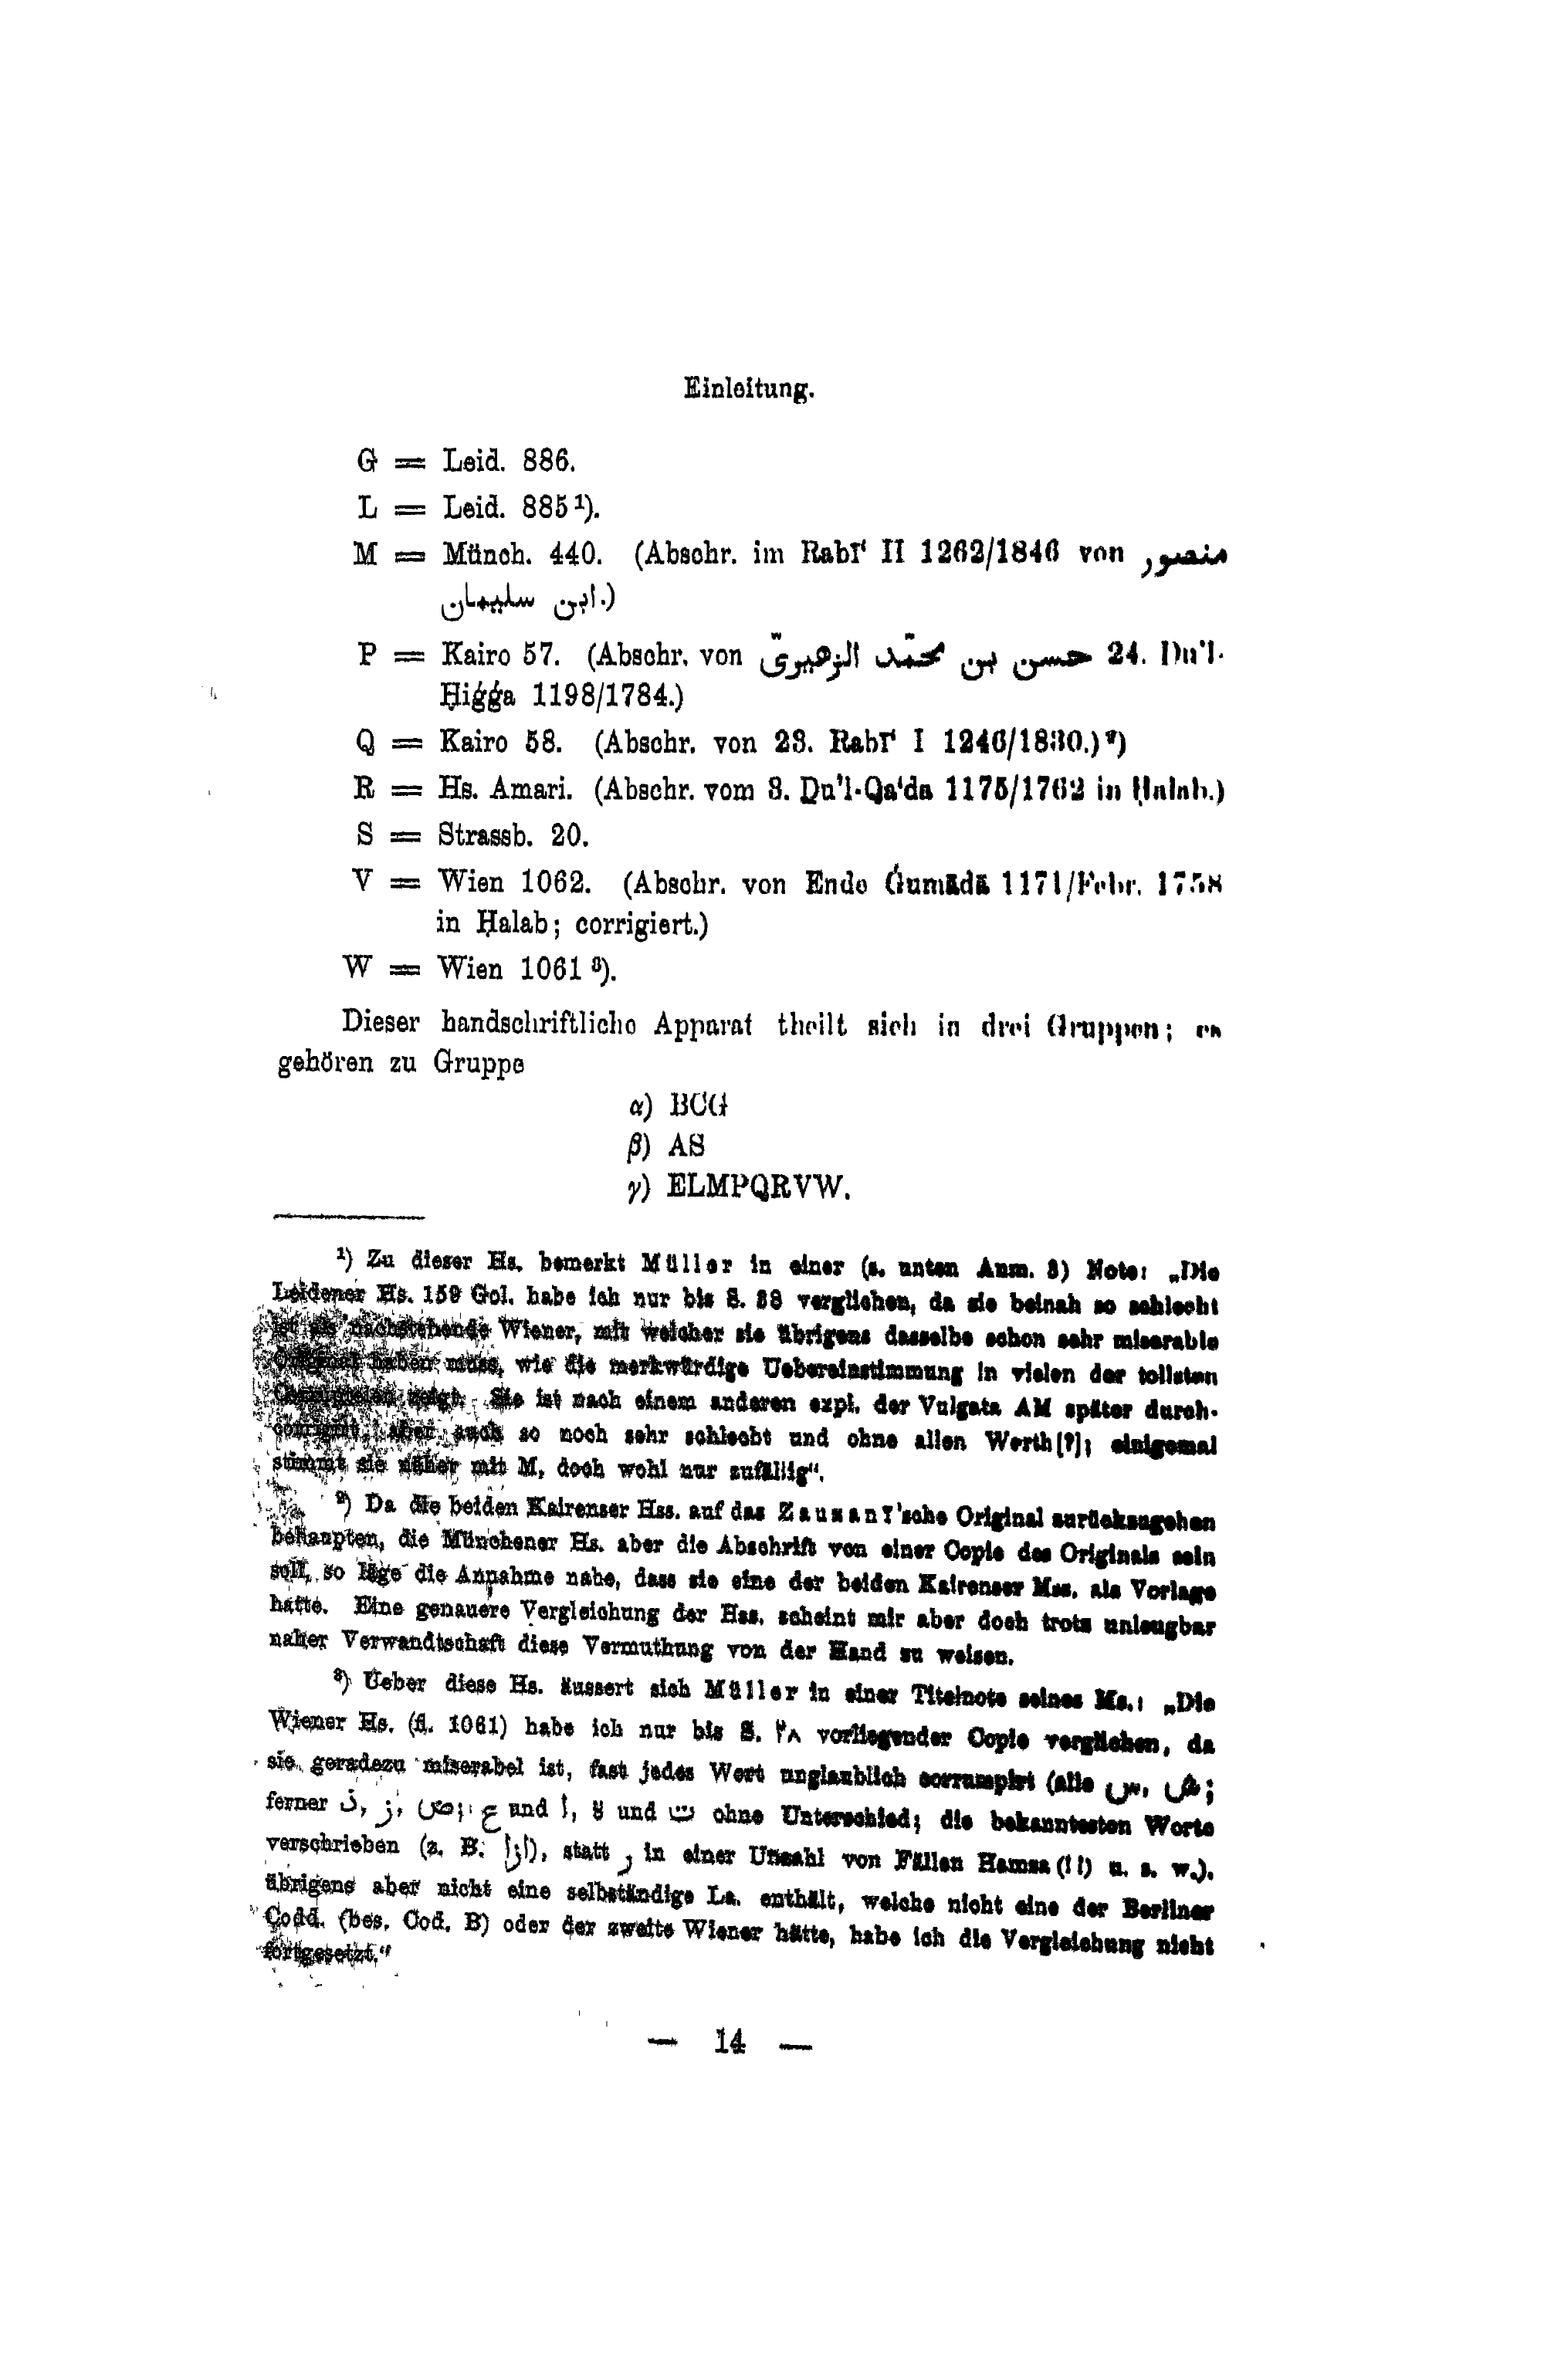 Einleitung.
G = Leid. 886.
L = Leid. 885 ¹).
M = Münch. 440. (Abschr. im Rabī‘ II 1262/1846 von منصور
ابن سليمان.)
P = Kairo 57. (Abschr. von حسن بن محمّد الزهيرىّ 24. Ḏu'l-
Ḥiǵǵa 1198/1784.)
Q = Kairo 58. (Abschr. von 28. Rabī‘ I 1246/1830.) ²)
R = Hs. Amari. (Abschr. vom 8. Ḏu'l-Qa‘da 1175/1762 in Ḥalab.)
S = Strassb. 20.
V = Wien 1062. (Abschr. von Ende Ǵumādā 1171/Febr. 1758
in Ḥalab; corrigiert.)
W = Wien 1061 ³).
Dieser handschriftliche Apparat theilt sich in drei Gruppen; es
gehören zu Gruppe
α) BCG
β) AS
γ) ELMPQRVW.
¹) Zu dieser Hs. bemerkt Müller in einer (s. unten Anm. 3) Note: „Die
Leidener Hs. 159 Gol. habe ich nur bis S. 38 verglichen, da sie beinah so schlecht
ist als nachstehende Wiener, mit welcher sie übrigens dasselbe schon sehr miserable
Original haben muss, wie die merkwürdige Uebereinstimmung in vielen der tollsten
zeigt. Sie ist nach einem anderen expl. der Vulgata AM später durch-
corrigirt, aber auch so noch sehr schlecht und ohne allen Werth[?]; einigemal
stimmt sie näher mit M, doch wohl nur zufällig“.
²) Da die beiden Kairenser Hss. auf das Zauzanī'sche Original zurückzugehen
behaupten, die Münchener Hs. aber die Abschrift von einer Copie des Originals sein
soll, so läge die Annahme nahe, dass sie eine der beiden Kairenser Mss. als Vorlage
hatte. Eine genauere Vergleichung der Hss. scheint mir aber doch trotz unleugbar
naher Verwandtschaft diese Vermuthung von der Hand zu weisen.
³) Ueber diese Hs. äussert sich Müller in einer Titelnote seines Ms.: „Die
Wiener Hs. (fl. 1061) habe ich nur bis S. ٣٨ vorliegender Copie verglichen, da
sie geradezu miserabel ist, fast jedes Wort unglaublich corrumpirt (alle س, ش;
ferner ذ, ز, ض; ع und أ, ة und ت ohne Unterschied; die bekanntesten Worte
verschrieben (z. B. ), statt ر in einer Unzahl von Fällen Hamza (!!) u. s. w.).
übrigens aber nicht eine selbständige La. enthält, welche nicht eine der Berliner
Codd. (bes. Cod. B) oder der zweite Wiener hätte, habe ich die Vergleichung nicht
fortgesetzt.“
— 14 —